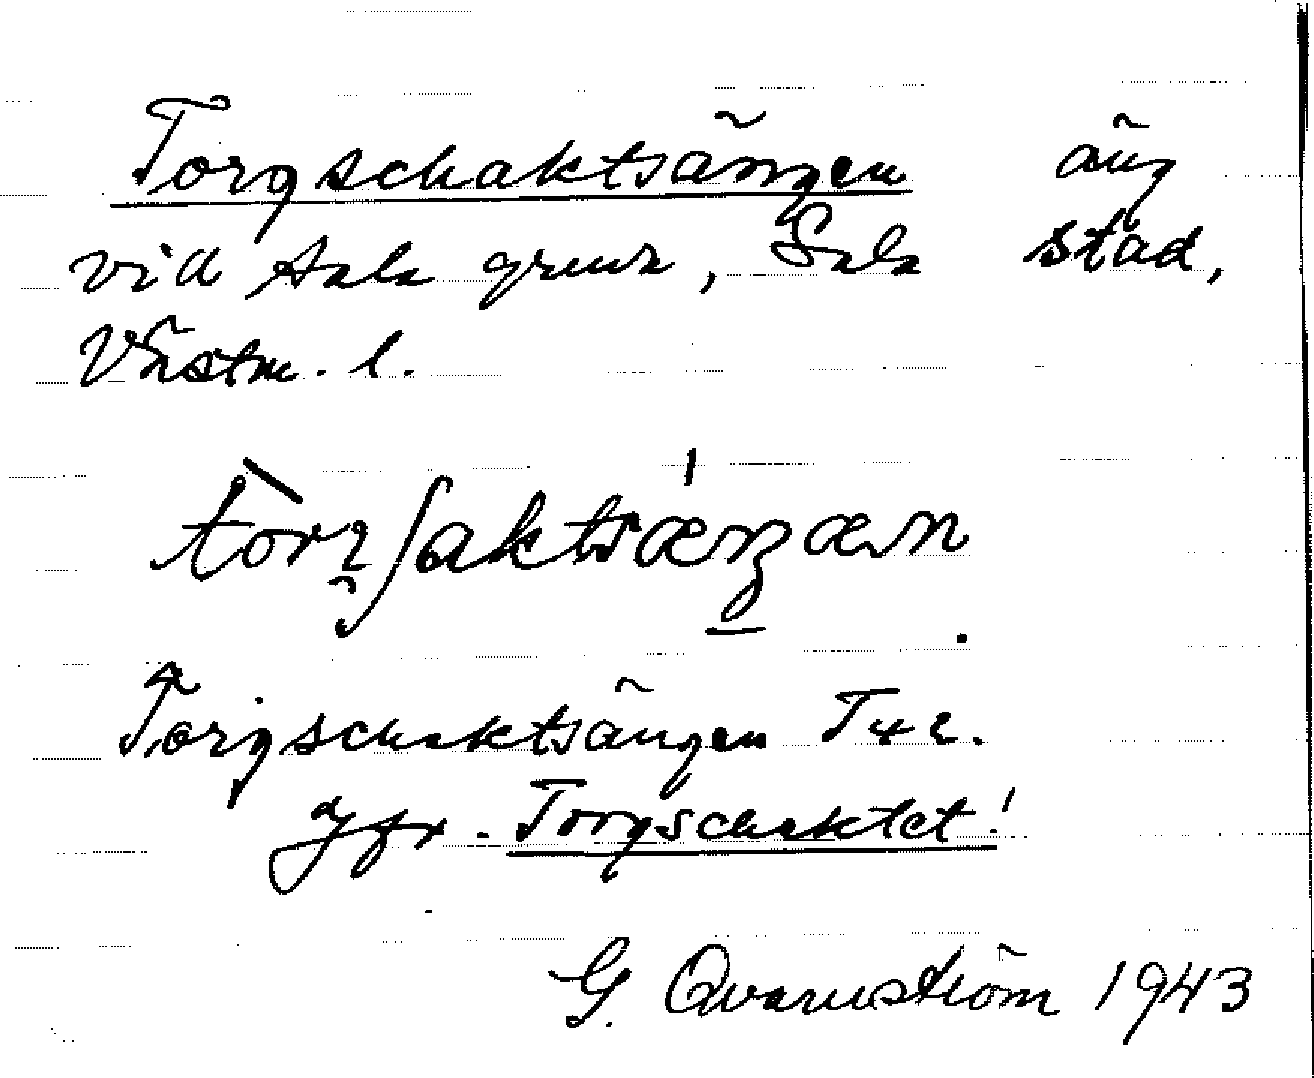 Torgschaktsängen äng
vid Sala gruva, Sala stad,
Västm. l.
Torgschaktsängen
Jfr. Torgschaktet!
G. Qvarnström 1943